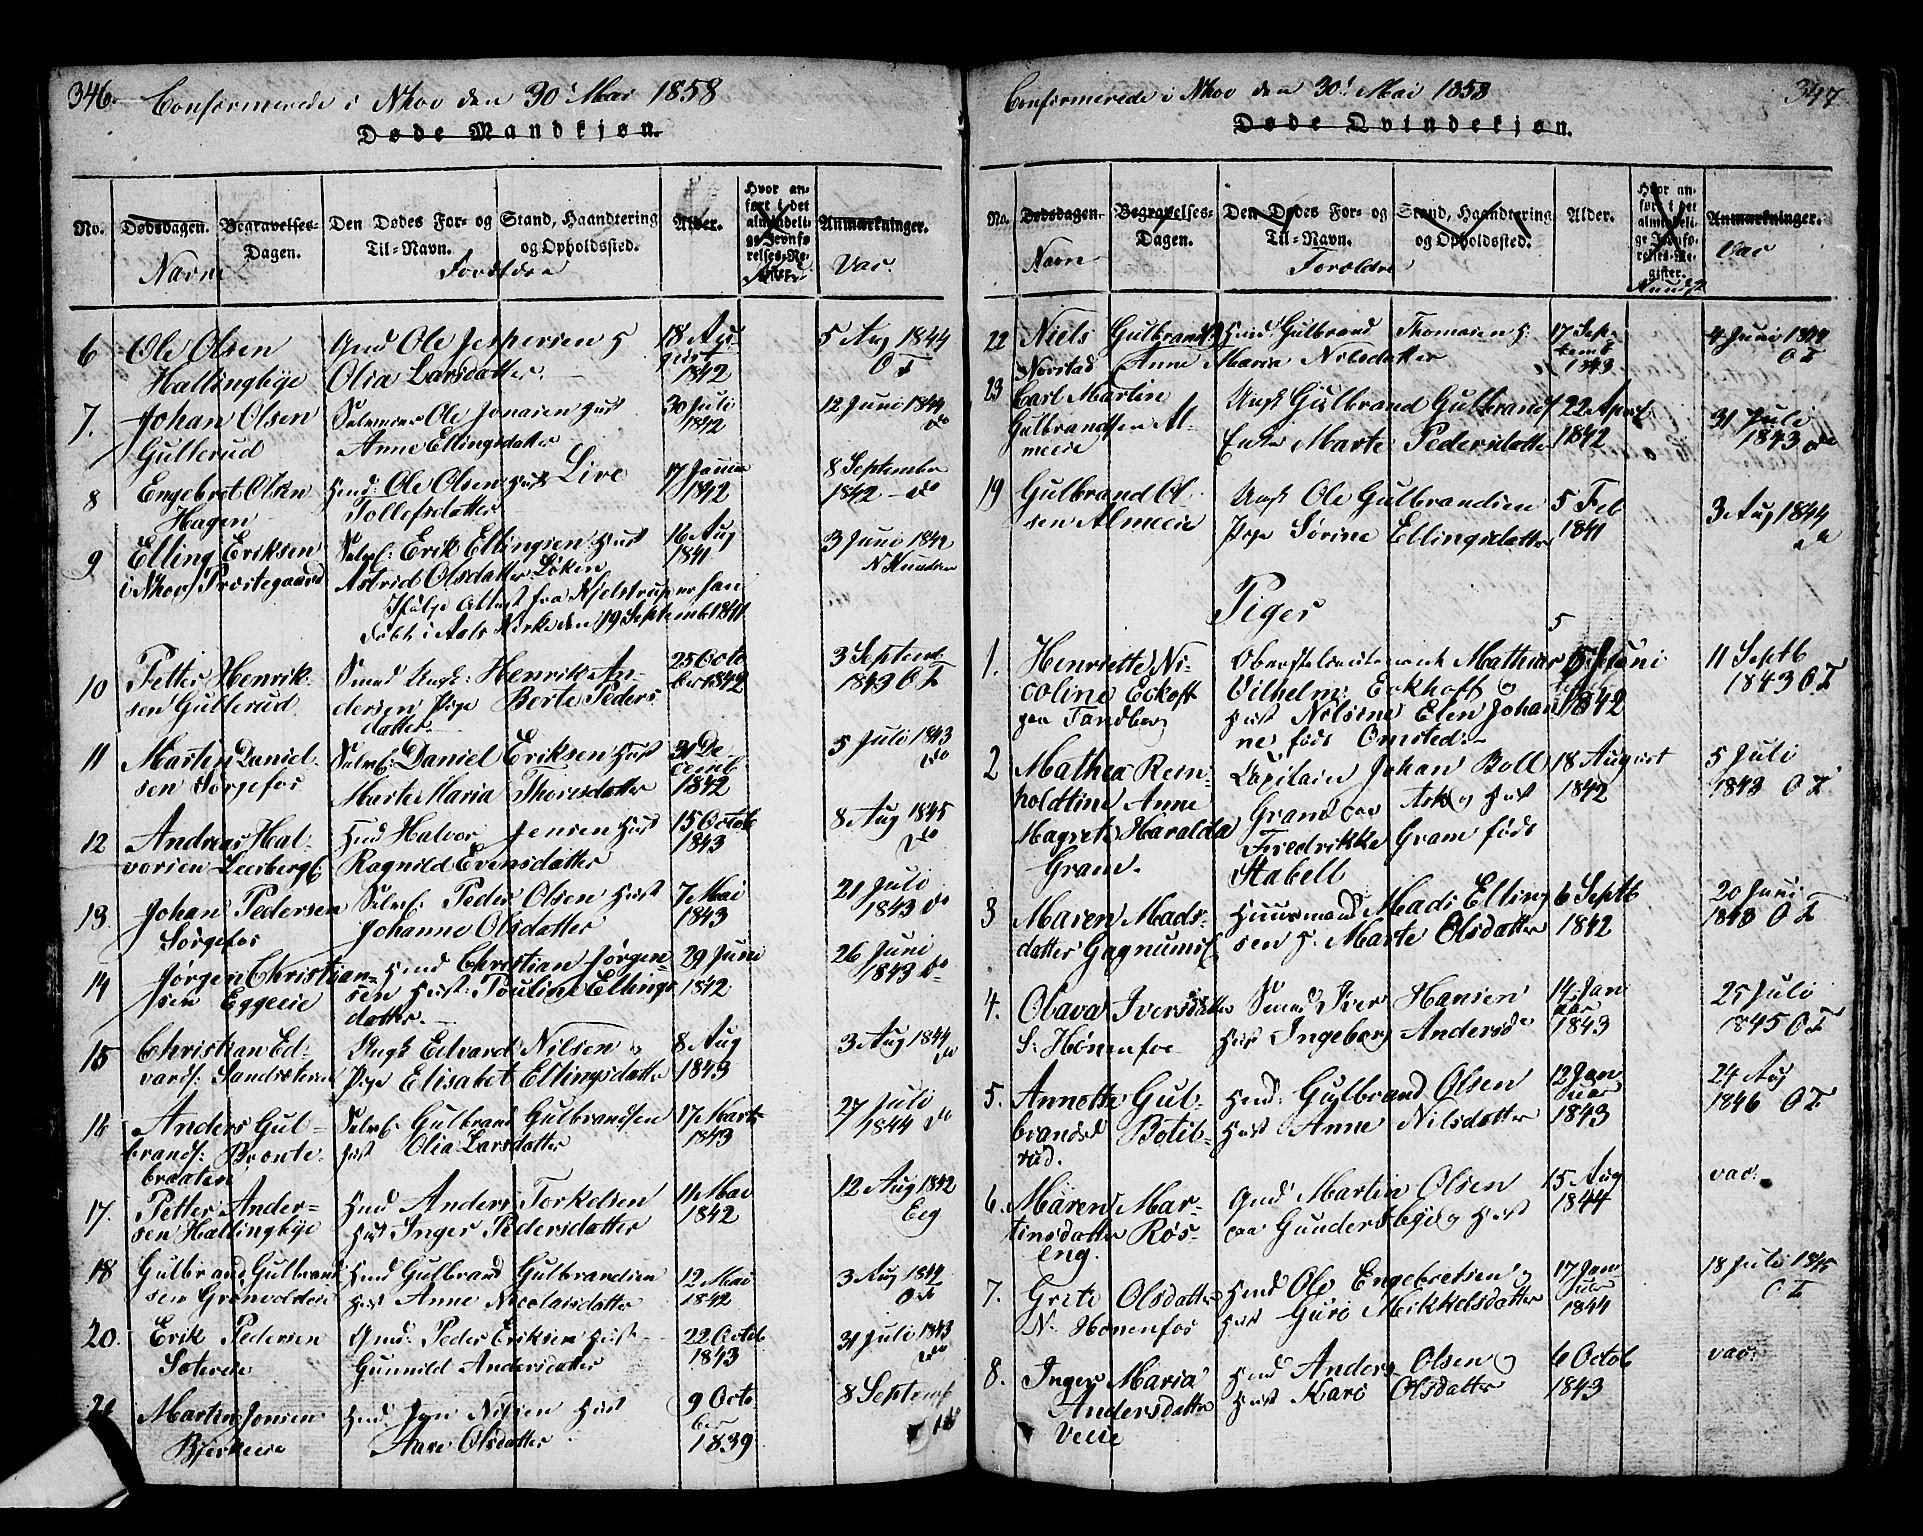 346.
Confirmerede i Nhov den 30' Mai 1858
Døde Mandkjøn.
No.
Dødsdagen.
Begravelses-Dagen.
Den Dødes For- og Til-Navn.
Stand, Haandtering og Opholdssted.
Alder.
Hvor anført i det almindelige Jevnførelses-Register.
Anmærkninger.
Navne
Forældre
Vac.
6 Ole Olsen Hallingbye
Gmd Ole Jespersen H Olia Larsdatter.
18 August 1842
5 Aug 1844 OT
7. Johan Olsen Gullerud
Selveier Ole Jonasen Hust Anne Ellingsdatter
30 Juli 1842
12 Juni 1844 do
8 Engebret Olsen Hagen
Hmd: Ole Olsen Hust Live Tollefsdatter
17 Januar 1842
8 September 1842 - do
9 Elling Eriksen i Nhov Prostegaard
Selvei: Erik Ellingsen Hust Astrid Olsdatter Løken
16 Aug 1841
3 Juni 1842 N Knudsen
Ifølge Attest fra Kjelstrup er han døbt i Aals Kirke den 19 Septemb 1841
10 Petter Henriksen Gullerud
Smed Ungk: Henrik Andersen Pige Berte Pedersdatter
25 October 1842
3 Septemb 1843 OT
11 Marten Danielsen Sørgefos
Selvei: Daniel Eriksen Hust Marte Maria Thoresdatter
31 Decemb 1842
5 Juli 1843 do
12 Andreas Halvorsen Leerberg
Hmd Halvor Jensen Hust Ragnild Evensdatter
15 Octob 1843
8 Aug 1845 do
13. Johan Pedersen Sørgefos
Selvei: Peder Olsen Hust Johanne Olsdatter
7 Mai 1843
21 Juli 1843 do
14 Jørgen Christiansen Eggeeie
Hmd Christian Jørgensen Hust: Pouline Ellingsdatter.
29 Juni 1842
26 Juni 1843 do
15 Christian Edvards: Sandsteren
Ungk Edvard Nilsen og Pige Elisabet Ellingsdatter
8 Aug 1843
3 Aug 1844 do
16 Anders Gulbrands: Brontebraaten
Selvei: Gulbrand Gulbrandsen Hust Olia Larsdatter
17 Marts 1843
27 Juli 1844 do
17. Petter Andersen Hallingbye
Hmd Anders Torkelsen Hust Inger Pedersdatter
11 Mai 1842
12 Aug 1842 Eeg
18 Gulbrand Gulbrandsen Grønvoldeie
Hmd Gulbrand Gulbrandsen Hust Anne Nicolaisdatter
12 Mai 1842
3 Aug 1844 OT
20. Erik Pedersen Sotereie
Gmd: Peder Eriksen Hust Gunnild Andersdatter
22 Octob 1843
31 Juli 1843 do
21 Martin Jonsen Bjerkeeie
Hmd Jon Nilsen Hust Aase Olsdatter
9 October 1839
8 Septemb
347
Confirmerede i Nhov den 30' Mai 1858
Døde Qvindekjøn.
No.
Dødsdagen.
Begravelses-Dagen.
Den Dødes For- og Til-Navn.
Stand, Haandtering og Opholdssted.
Alder.
Hvor anført i det almindelige Jevnførelses-Register.
Anmærkninger.
Navn
Forældre
Vac
22 Niels Gulbrands Norstad
Hmd Gulbrand Thomasen H: Anne Maria Nilsdatter
17 Septemb 1843
4 Juni 1844 OT
23 Carl Martin Gulbrandsen Almeeie
Ungk Gulbrand Gulbrands Enke Marte Pedersdatter
22 April 1842
31 Juli 1843 do
19 Gulbrand Olsen Almeeie
Ungk Ole Gulbrandsen Pige Sørine Ellingsdatter
5 Feb 1841
3 Aug 1844 do
Piger
1. Henriette Nicoline Eckoft paa Tandberg
Oberstlieutenant Mathias Vilhelm: Eckhoft og Hust Nilsine Elen Johanne føds Omsted:
5 Juni 1842
11 Septb 1843 OT
2 Mathea Reinholdtine Anne Magrete Haralda Gram.
Capitain Johan Boll Gram paa Ask og Hust Fredrikke Gram føds Stabell
18 August 1842
5 Juli 1843 OT
3 Maren Madsdatter Gagnums
Huusmand Mads Ellingsen H. Marte Olsdatter
6 Septb 1842
20 Juni 1843 OT
4. Olava Iversdatter S: Hønenfos
Smed Iver Hansen Hust Ingeborg Andersd
14 Januar 1843
25 Juli 1845 OT
5. Annette Gulbrandsd Botilrud.
Hmd: Gulbrand Olsen Hust Anne Nilsdatter
12 Januar 1843
24 Aug 1846 OT
6. Maren Martinsdatter Røseng.
Gmd Martin Olsen paa Gundersbye og Hust
15 Aug 1844
vac:
7. Grete Olsdatter N. Honenfos
Hmd Ole Engebretsen og Hust Guro Mikkelsdatter
17 Januar 1844
18 Juli 1845 OT
8. Inger Maria Andersdatter Veeie
Hmd Anders Olsen og Hust Kari Olsdatter
6 Octob 1843
vac: